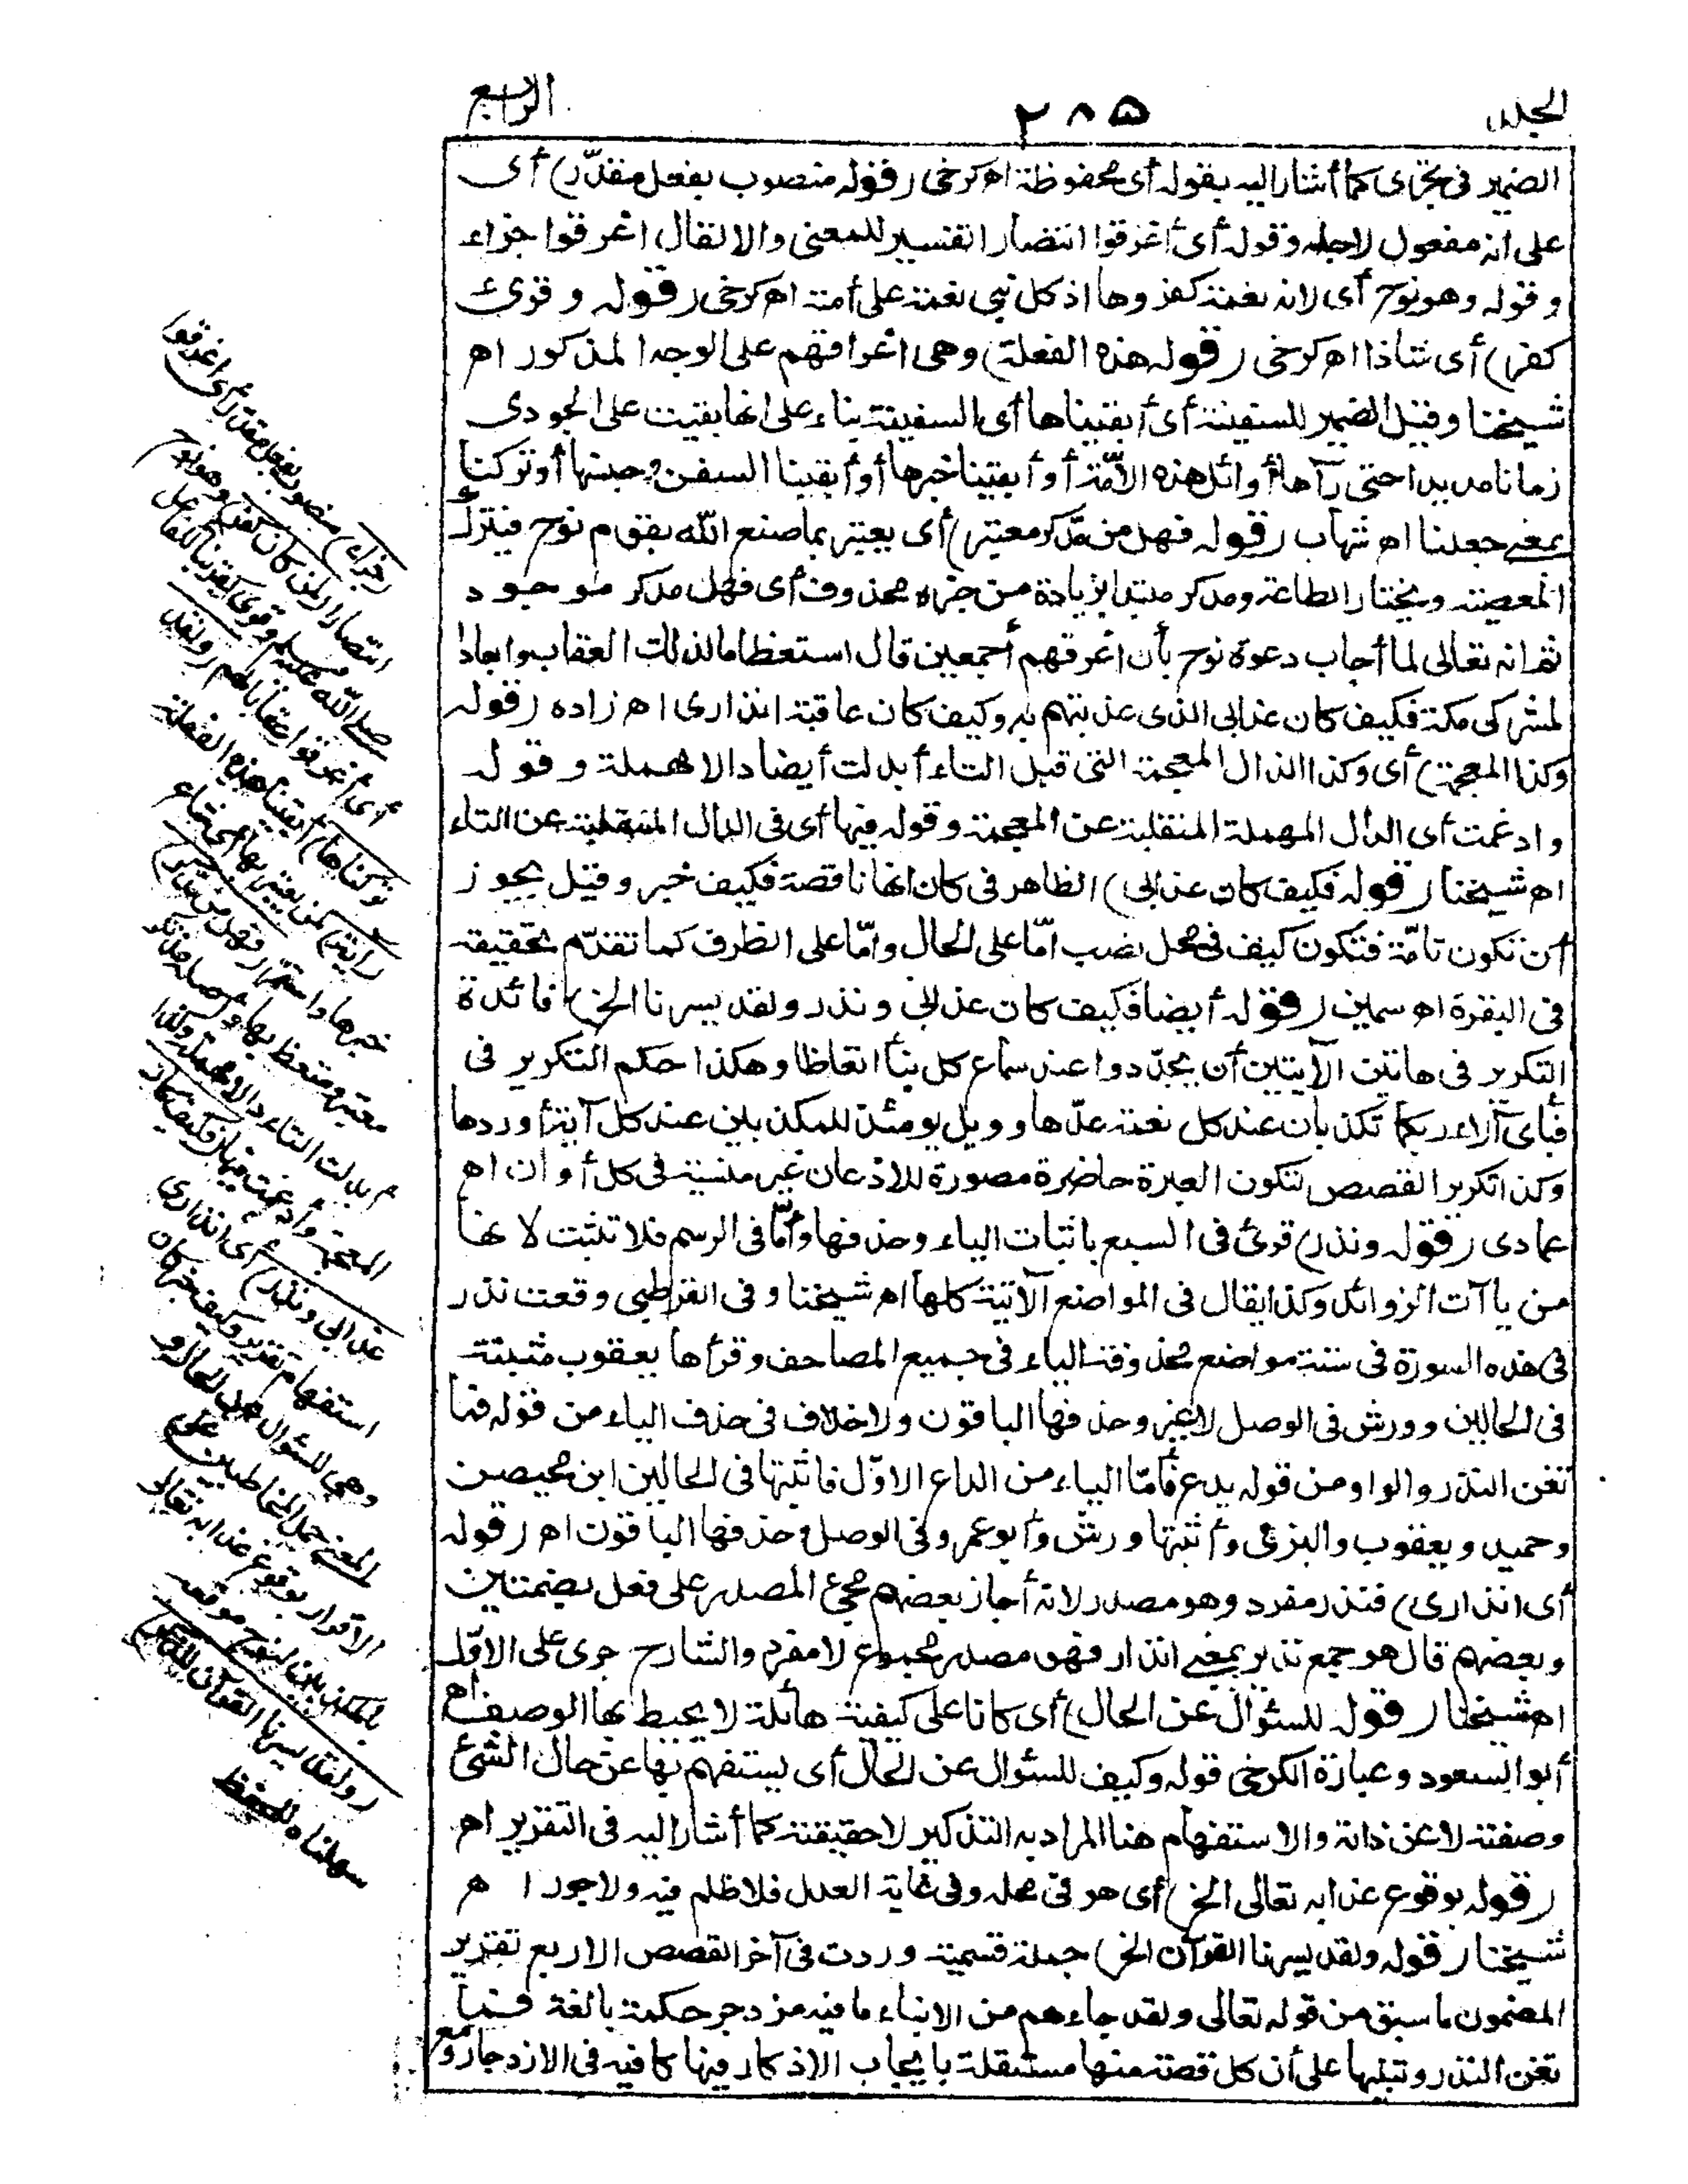 الجلد
٢٨٥
الرابع
الضمير في تجري كما أشار اليه بقوله أى محفوظة اھ كرخى (قوله منصوب بفعل مقدّر) أى
على انه مفعول لاجله وقوله أى أغرقوا انتصارا تفسير للمعنى والا لقال اغرقوا جزاء
وقوله وهو نوح أى لانه نعمة كفروها اذ كل نبى نعمة على أمته اھ كرخى (قوله وقرئ
كفر) أى شاذا اھ كرخى (قوله هذه الفعلة) وهى اغراقهم على الوجه المذكور اھ
شيخنا وقيل الضمير للسفينة أى أبقيناها أى السفينة بناء على انها بقيت على الجودى
زمانا مديدا حتى رآها أوائل هذه الأمّة أو أبقينا خبرها أو أبقينا السفن وجنسها أو تركنا
بمعنى جعلنا اھ شهاب (قوله فهل من مدّكر معتبر) أى يعتبر بما صنع الله بقوم نوح فيترك
المعصية ويختار الطاعة ومدكر مبتدا بزيادة من خبره محذوف أى فهل مدكر موجود
ثم انه تعالى لما أجاب دعوة نوح بأن اغرقهم أجمعين قال استعظاما لذلك العقاب وايعادا
لمشركى مكة فكيف كان عذابى الذى عذبتهم به وكيف كان عاقبة انذارى اھ زاده (قوله
وكذا المعجمة) أى وكذا الذال المعجمة التى قبل التاء أبدلت أيضا دالا مهملة وقوله
وادغمت أى الدال المهملة المنقلبة عن المعجمة وقوله فيها أى فى الدال المنقلبة عن التاء
اھ شيخنا (قوله فكيف كان عذابى) الظاهر فى كان انها ناقصة فكيف خبر وقيل يجوز
أن تكون تامّة فتكون كيف فى محل نصب امّا على الحال وامّا على الظرف كما تقدّم تحقيقه
فى البقرة اھ سمين (قوله أيضا فكيف كان عذابى ونذر ولقد يسرنا الخ) فائدة
التكرير فى هاتين الآيتين أن يجدّدوا عند سماع كل نبأ اتعاظا وهكذا حكم التكرير فى
فبأى آلاء ربكما تكذبان عند كل نعمة عدّها وويل يومئذ للمكذبين عند كل آية أوردها
وكذا تكرير القصص لتكون العبرة حاضرة مصورة للاذهان غير منسية فى كل أوان اھ
عمادى (قوله ونذر) قرئ فى السبع باثبات الياء وحذفها وأمّا فى الرسم فلا تثبت لانها
من ياآت الزوائد وكذا يقال فى المواضع الآتية كلها اھ شيخنا وفى القرطبى وقعت نذر
فى هذه السورة فى ستة مواضع محذوفة الياء فى جميع المصاحف وقرأها يعقوب مثبتة
فى الحالين وورش فى الوصل لا غير وحذفها الباقون ولا خلاف فى حذف الياء من قوله فما
تغن النذر والواو من قوله يدع فأمّا الياء من الداع الاوّل فاثبتها فى الحالين ابن محيصن
وحميد ويعقوب والبزى وأثبتها ورش وأبو عمرو فى الوصل وحذفها الباقون اھ (قوله
أى انذارى) فنذر مفرد وهو مصدر لانه أجاز بعضهم مجئ المصدر على فعل بضمتين
وبعضهم قال هو جمع نذير بمعنى انذار فهو مصدر مجموع لا مفرد والشارح جرى على الاوّل
اھ شيخنا (قوله للسئوال عن الحال) أى كانا على كيفية هائلة لا يحيط بها الوصف اھ
أبو السعود وعبارة الكرخى قوله وكيف للسئوال عن الحال أى يستفهم بها عن حال الشئ
وصفته لا عن ذاته والاستفهام هنا المراد به التذكير لا حقيقته كما أشار اليه فى التقرير اھ
(قوله بوقوع عذابه تعالى الخ) أى هو فى محله وفى غاية العدل فلا ظلم فيه ولا جور اھ
شيخنا (قوله ولقد يسرنا القرآن الخ) جملة قسمية وردت فى آخر القصص الاربع تقريرا
لمضمون ما سبق من قوله تعالى ولقد جاءهم من الانباء ما فيه مزدجر حكمة بالغة فما
تغن النذر وتنبيها على أن كل قصة منها مستقلة بايجاب الاذكار فيها كافية فى الازدجار ومع
(جزاء) منصوب بفعل مقدر أى اغرقوا
انتصارا (لمن كان كفر) وهو نوح
صلى الله عليه وسلم وقرئ كفر بناء للفاعل
أى أغرقوا عقابا لهم (ولقد
تركناها) أبقينا هذه الفعلة
(آية) لمن يعتبر بها أى شاع
خبرها واستمر (فهل من مدّكر)
معتبر ومتعظ بها وأصله مذتكر
أبدلت التاء دالا مهملة وكذا
المعجمة وأدغمت فيها (فكيف كان
عذابى ونذر) أى انذارى
استفهام تقرير وكيف خبر كان
وهى للسئوال عن الحال و
المعنى حمل المخاطبين على
الاقرار بوقوع عذابه تعالى
بالمكذبين لنوح موقعه
(ولقد يسرنا القرآن للذكر)
سهلناه للحفظ